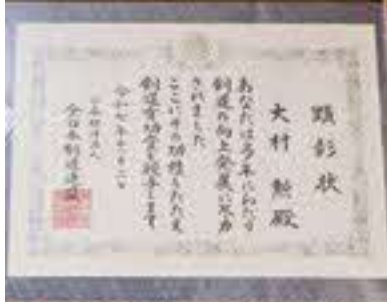 顕彰状
大村 勲殿
あなたは多年にわたり
剣道の向上発展に尽力
されました
ここにその功績をたたえ
剣道有功賞を授与します
令和七年十一月三日
公益財団法人
全日本剣道連盟